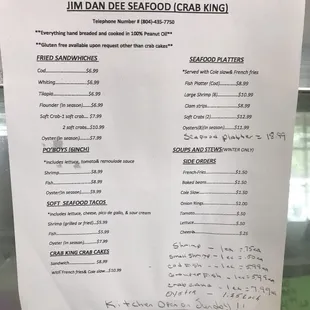 JIM DAN DEE SEAFOOD (CRAB KING)
Telephone Number # (804)-435-7750
**Everything hand breaded and cooked in 100% Peanut Oil**
**Gluten free available upon request other than crab cakes**
FRIED SANDWHICHES
Cod $6.99
Whiting $8.99
Tilapia $6.99
Flounder (in season) $6.99
Soft Crab-1 soft crab $7.99
2 soft crabs $10.99
Oyster(in season) $7.99
PO'BOYS (6INCH)
*Includes lettuce, tomato& remoulade sauce
Shrimp $8.99
Fish $8.99
Oyster(in season) $9.99
SOFT SEAFOOD TACOS
*Includes lettuce, cheese, pico de gallo, & sour cream
Shrimp (grilled or fried) $5.99
Fish $5.99
Oyster (in season) $7.99
CRAB KING CRAB CAKES
Sandwich $8.99
W/old French fries& Cole slaw $10.99
SEAFOOD PLATTERS
*Served with Cole slaw& French fries
Fish Platter (Cod) $8.99
Large Shrimp (8) $10.99
Clam strips $8.99
Soft Crabs (2) $12.99
Oysters(8)(in season) $11.99
Seafood platter = 18.99
SOUPS AND STEWS(WINTER ONLY)
SIDE ORDERS
French fries $1.50
Baked beans $1.50
Cole Slaw $1.50
Onion Rings $2.00
Shrimp - 1 ea = .75ea
Small Shrimp - 1 ea = .50ea
Cod fish - 1 ea = 5.99ea
Crab cake - 1 ea = 7.99ea
Kitchen Open Sunday !!